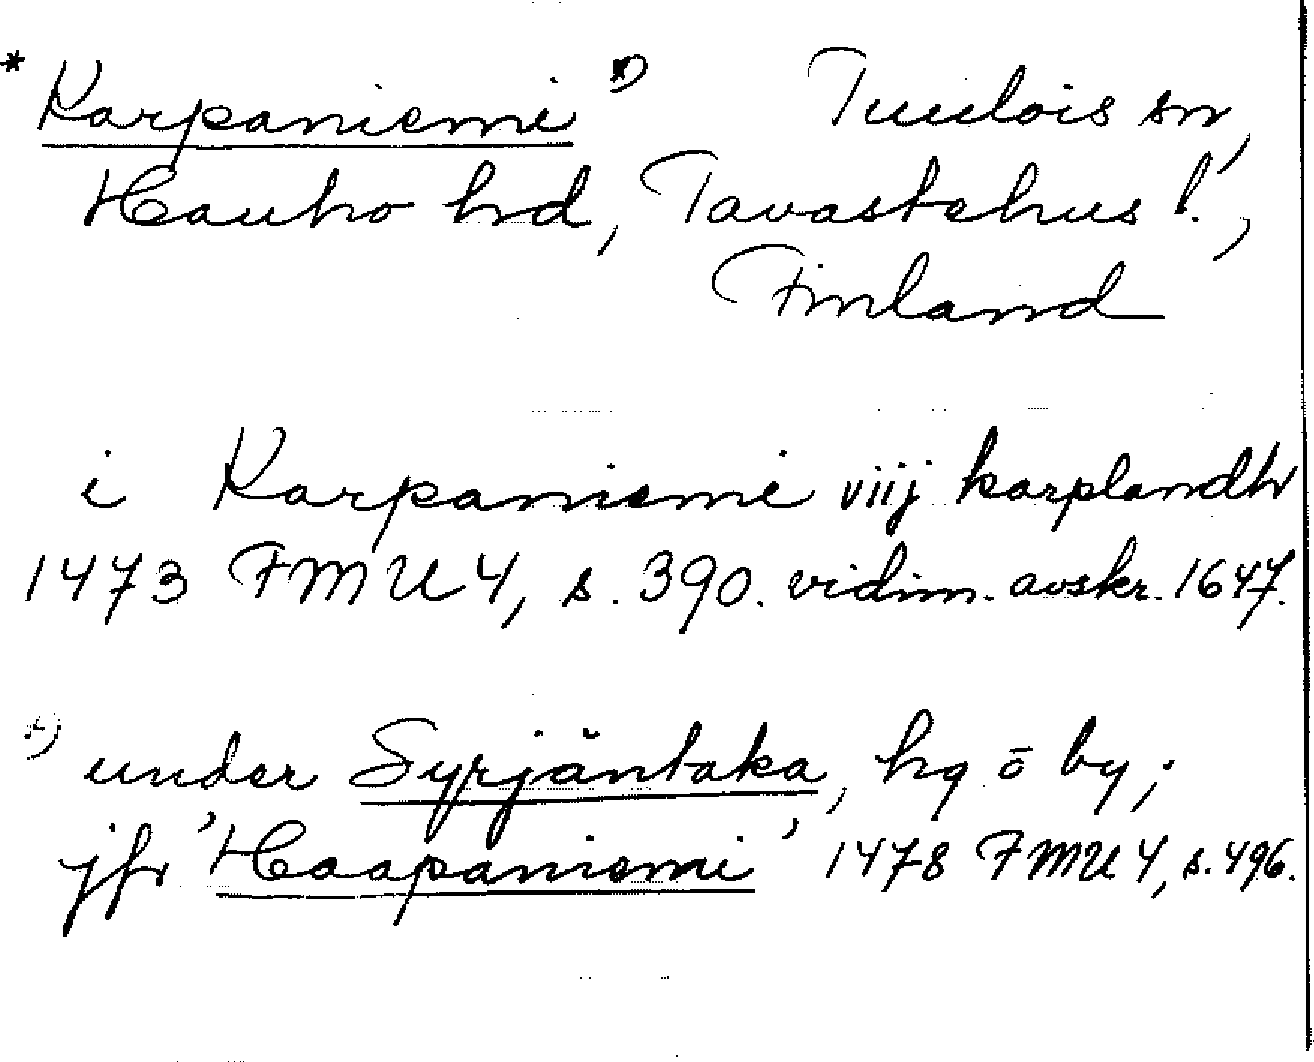 * Karpaniemi *) Tuulois sn,
Hauho hd, Tavastehus l.,
Finland
i Karpaniemi viij karplandh
1473 FMU 4, s. 390. vidim. avskr. 1647.
*) under Syrjäntaka, hg ō by;
jfr 'Haapaniemi' 1478 FMU 4, s. 496.